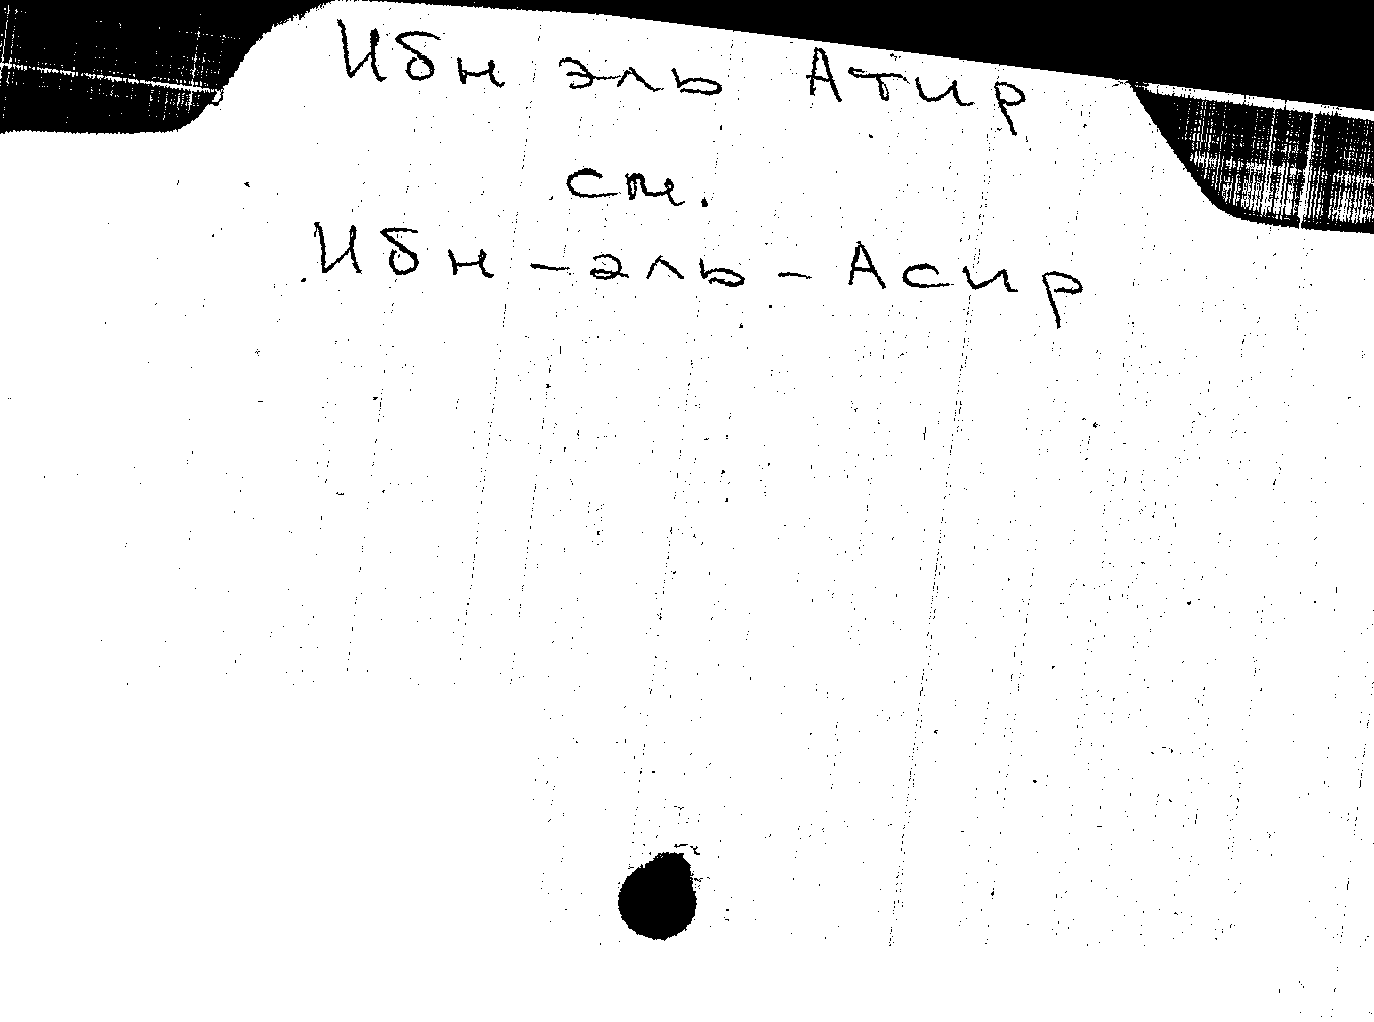 Ибн эль Атир
см.
Ибн-эль-Асир